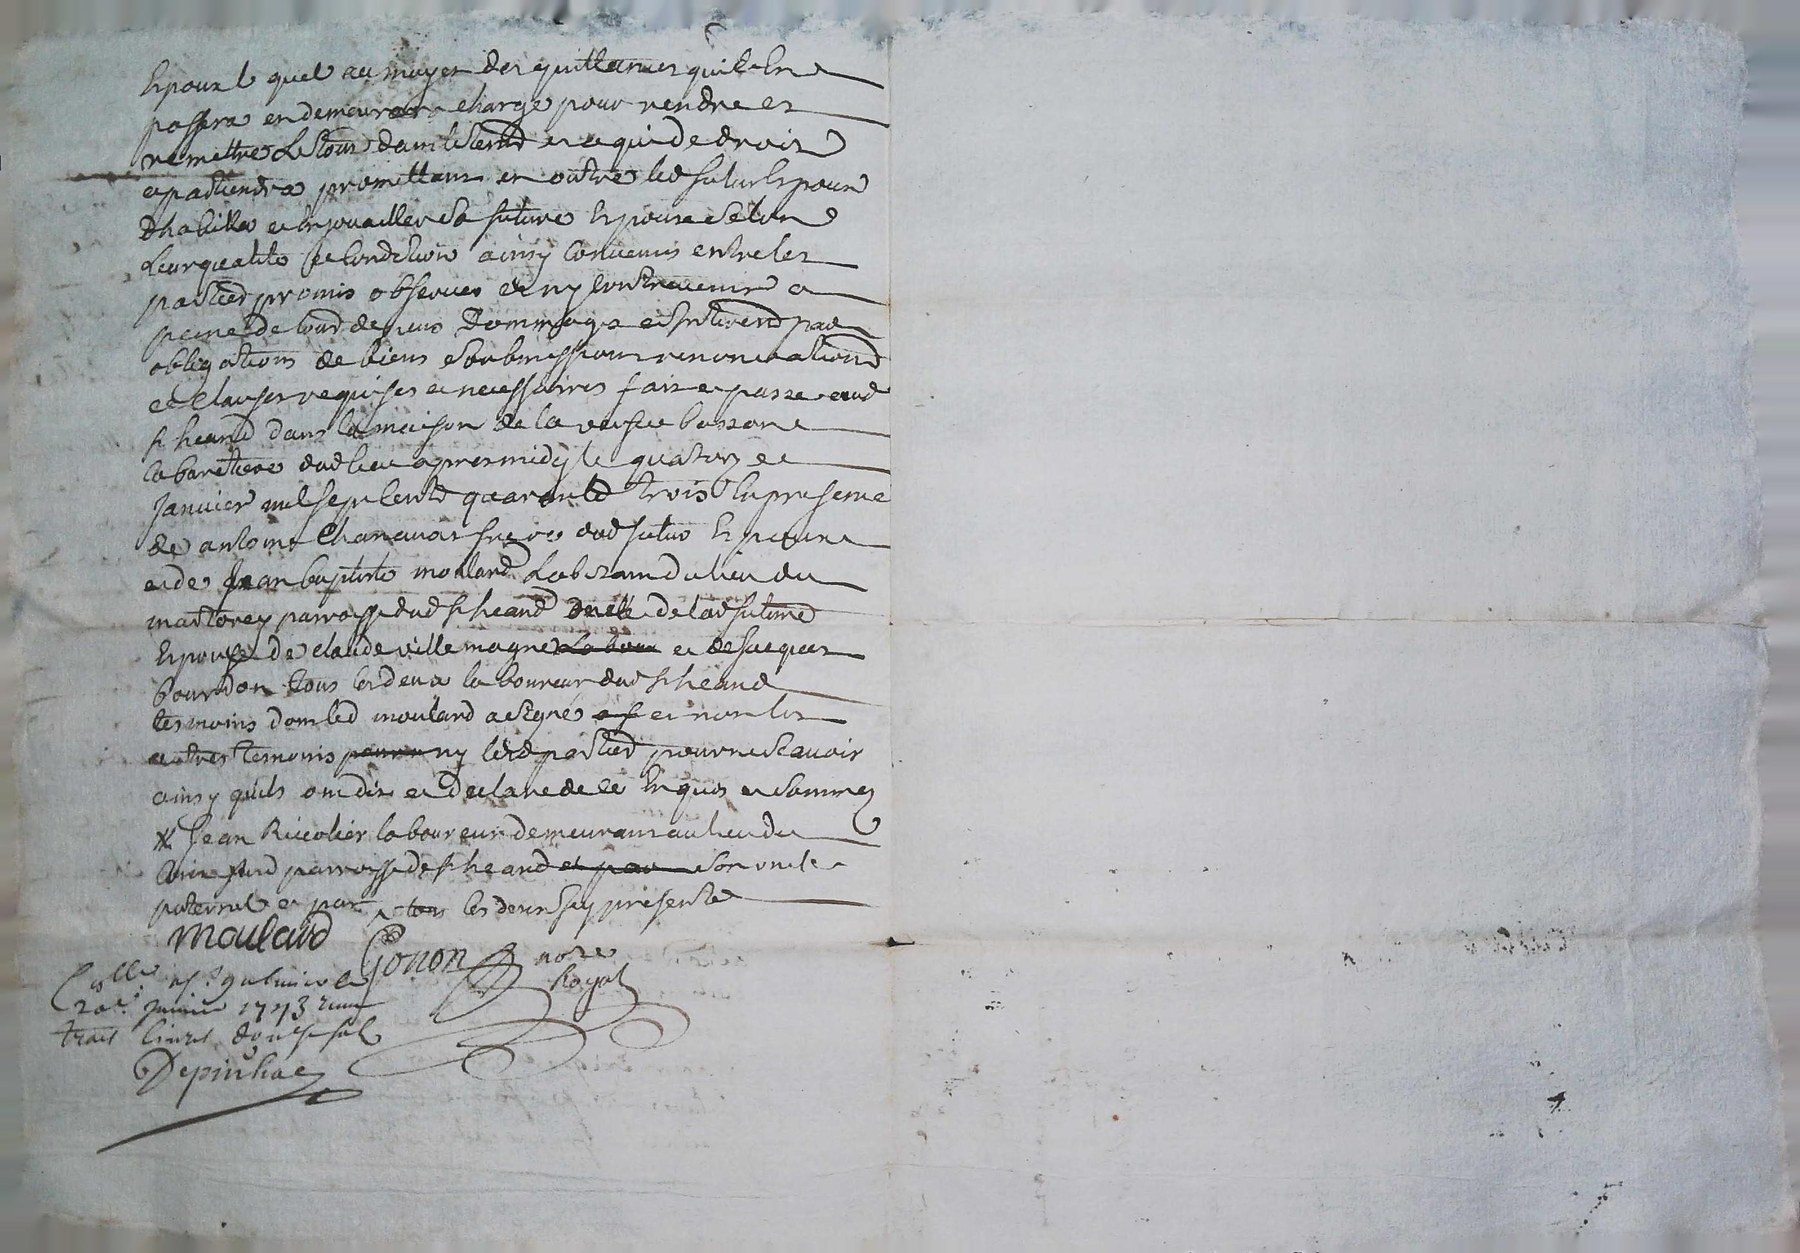 Epoux le quel au moyen des quittances quil en
passera en demeurera chargé pour rendre et
remettre Le tout dans le cas et a qui de droit
apartiendra promettant en outre led futur Epoux
dhabiller et Enjouailler Sa future Epouse Selon
Leur qualité et Condition ainsy Convenus entre les
parties promis observer et ny Contrevenir a
peine de tous depens Dommages et interests par
obligations de biens Soubmissions renonciations
et Clauses requises et necessaires fait et passé aud
St heand dans la maison de la veufve bassone
Cabaretiere dud lieu apres midy le quatorze
Janvier mil sept Cents quarante trois En presence
de antoine Chanavat frere dud futur Epoux
et de Jean baptiste moulard Lab dud lieu du
martorey parroisse dud St heand de lad future
Epouse de claude villemagne et de Jacques
bourdon tous les deux laboureur dud St heand
tesmoins dont led moulard a Signé et non les
autres temoins ny lesd parties pour ne Scavoir
ainsy quils ont dit et declaré de ce Enquis et Sommez
Jean Ricolier laboureur demeurant au lieu du
parroisse de St heand Son oncle
paternel et par les deux Sy presente
Moulard Gonon nore
Royal
Collé a St galmier le
20e Janvier 1743 Reçu
trois livres douze sols
Depinhac